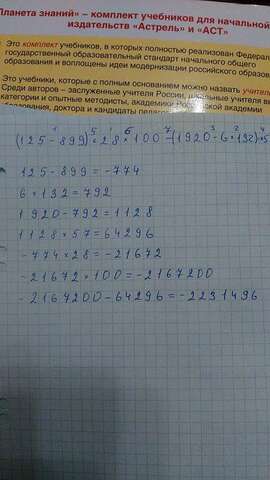 Планета знаний» – комплект учебников для начальной
издательств «Астрель» и «АСТ»
Это комплект учебников, в которых полностью реализован Федерал
государственный образовательный стандарт начального общего
образования и воплощены идеи модернизации российского образов
Это учебники, которые с полным основанием можно назвать учител
Среди авторов – заслуженные учителя России, школьные учителя в
категории и опытные методисты, академики Российской академии
образования, доктора и кандидаты педагог
(125-899)·28·100-(1920-6·132)·5
125-899=-774
6×132=792
1920-792=1128
1128×57=64296
-774×28=-21672
-21672×100=-2167200
-2167200-64296=-2231496